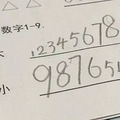 数字1-9.
大
12345678
987654
小